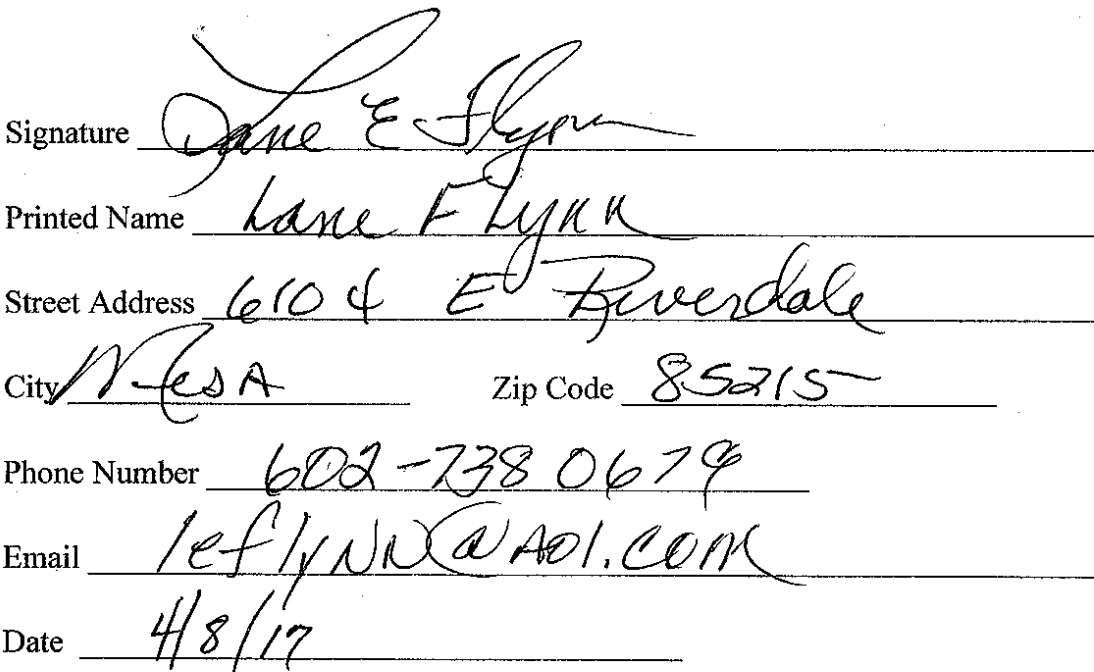 Signature Lane E Flynn
Printed Name Lane Flynn
Street Address 6104 E Riverdale
City Mesa Zip Code 85215
Phone Number 602-738 0679
Email leflyNN@AOl.COM
Date 4/8/17